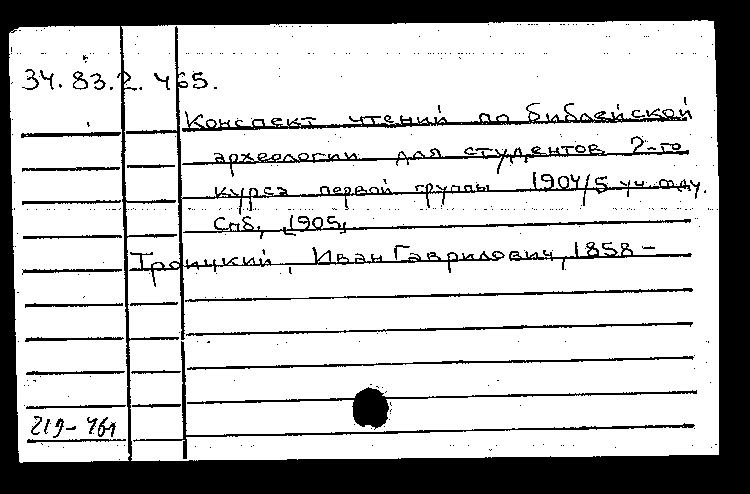 34.83.2.465.
Конспект чтений по библейской
археологии для студентов 2-го
курса первой группы 1904/5 уч. году.
Спб, 1905,
Троицкий, Иван Гаврилович, 1858-
219-461